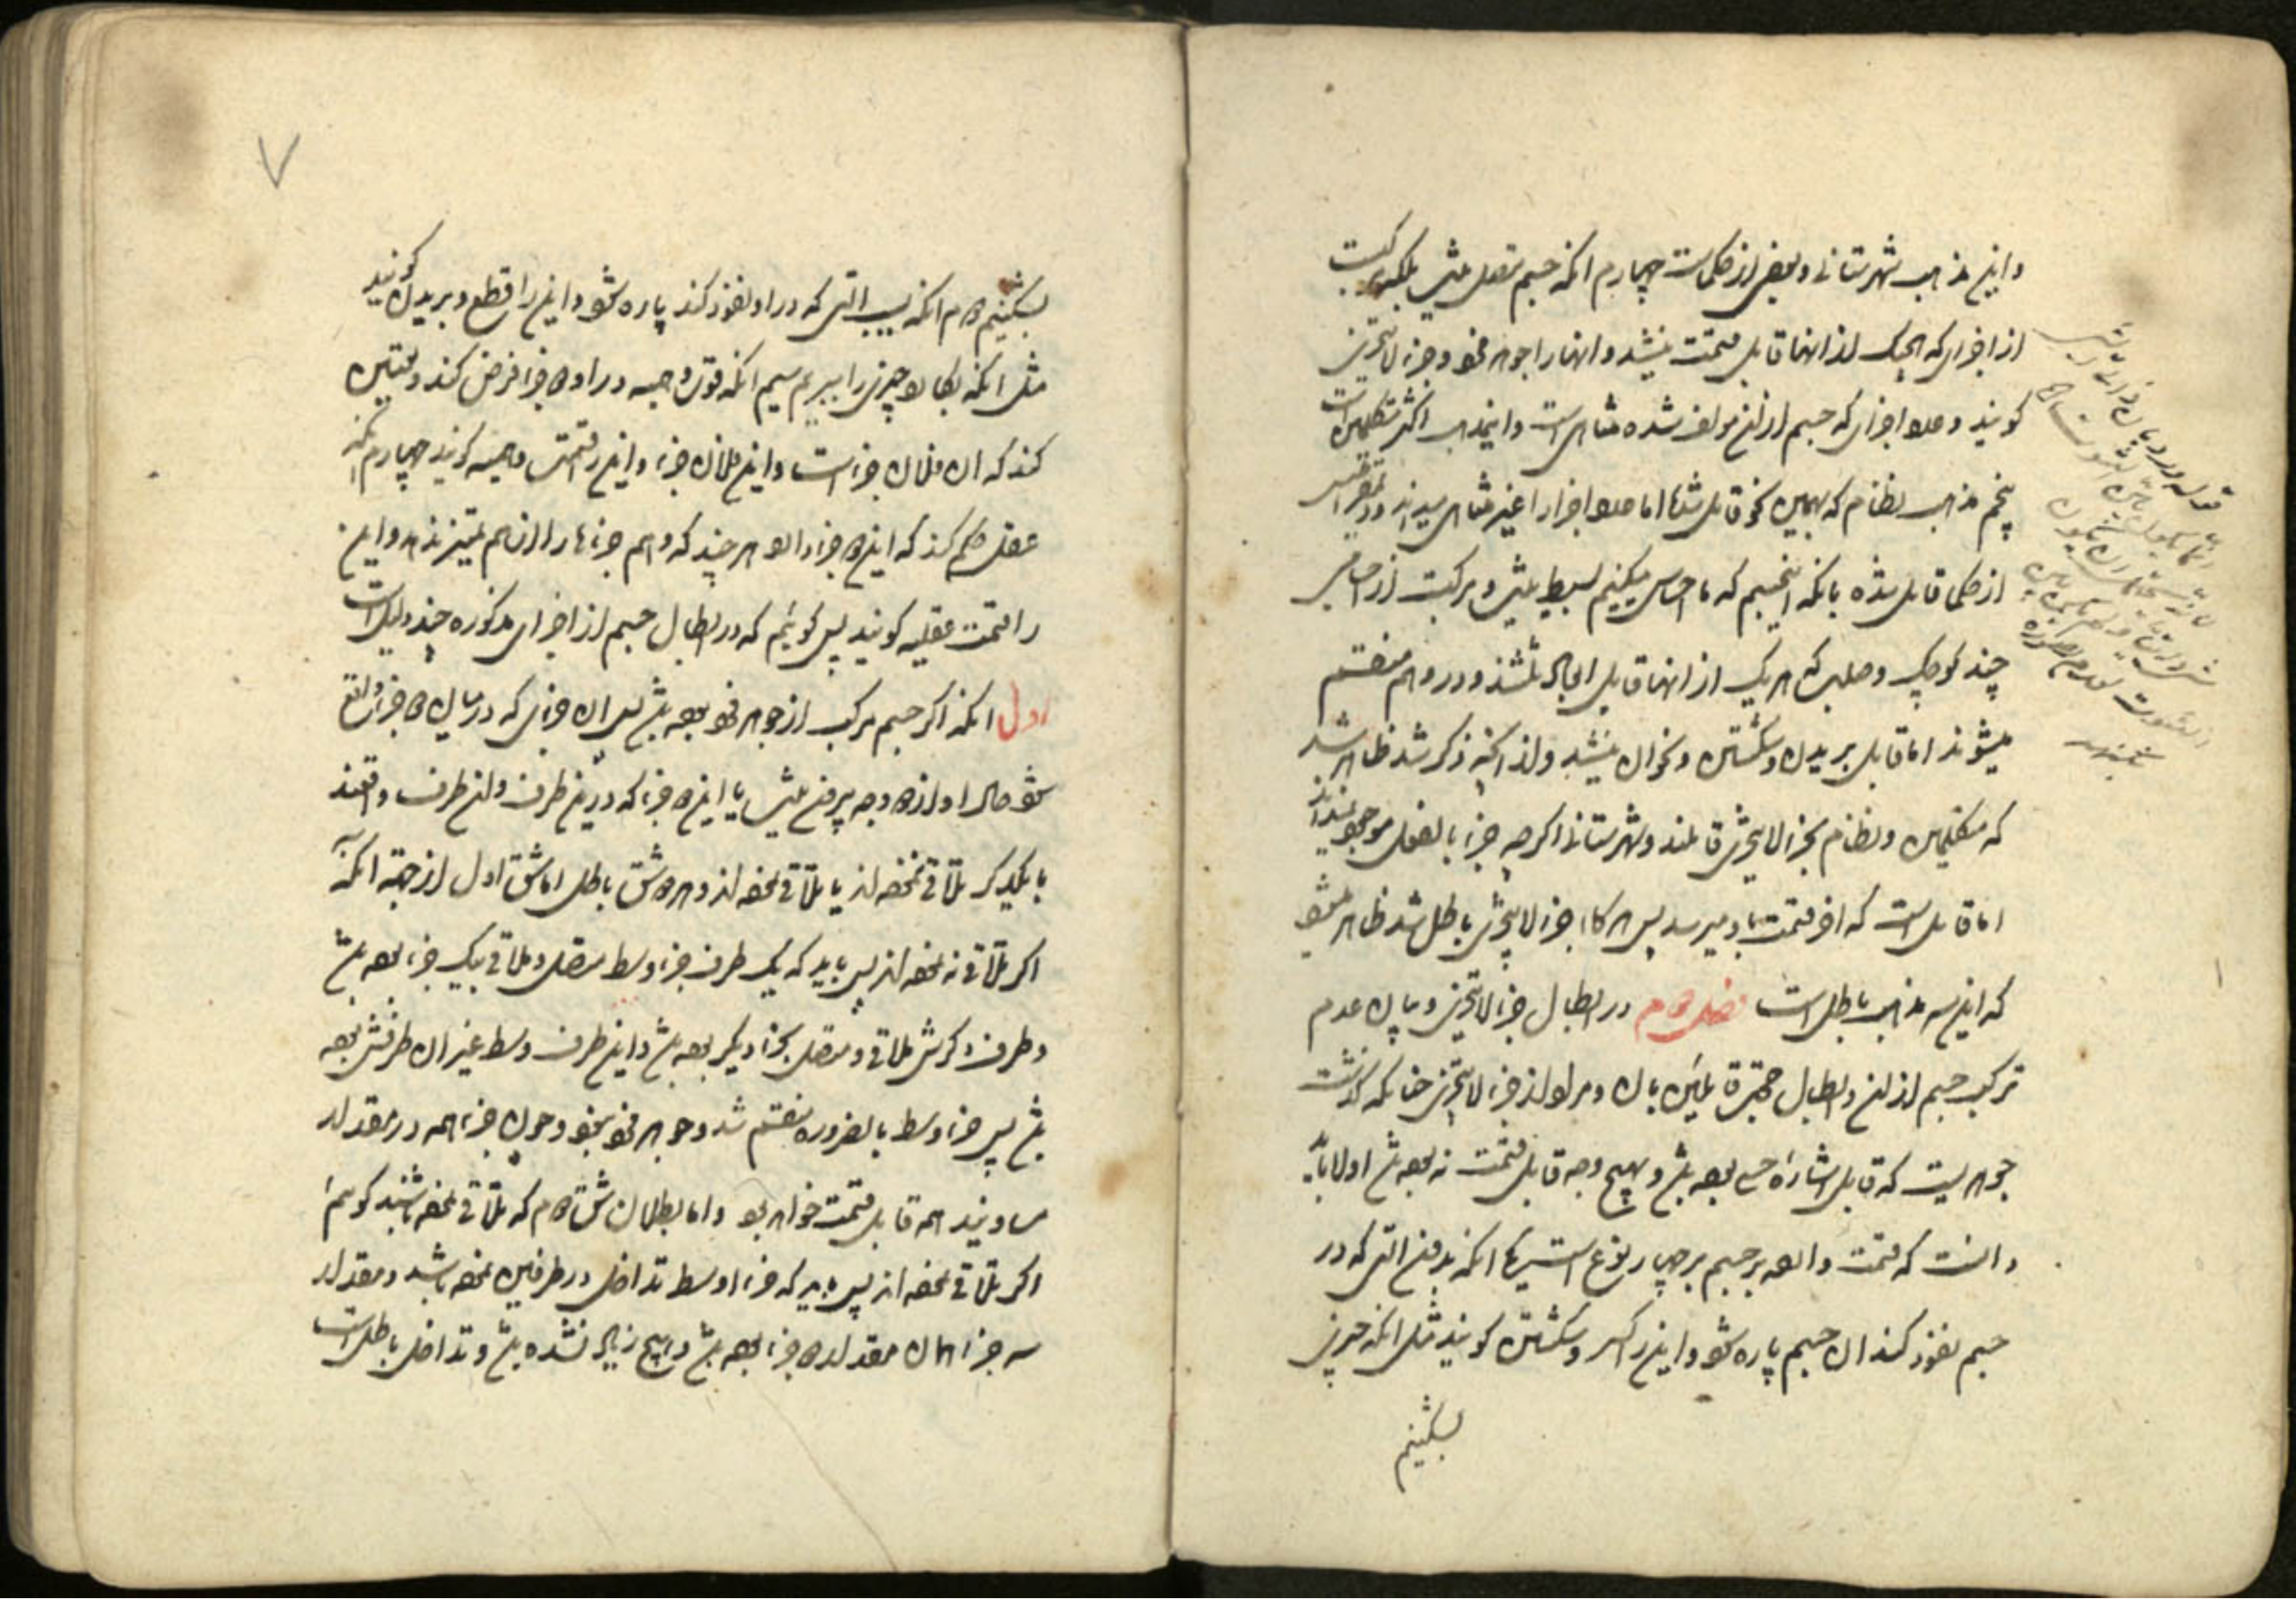 و این مذهب شهرستانی و بعضی از حکماست چهارم انکه جسم متصل نیست بلکه مرکبست
از اجزای که هیچیک از انها قابل قسمت نیستند و انها را جوهر فرد و جزء لا یتجزی
کویند و عدد اجزای که جسم از ان مولف شده متناهی است و این مذهب اکثر متکلمین است
پنجم مذهب نظام که بهمین نحو قابل شد اما عدد اجزا را غیر متناهی میداند و ذیمقراطیس
از حکما قابل شده بانکه این جسم که ما احساس میکنیم بسیط نیست و مرکبست از اجسامی
چند کوچک و صلب که هر یک از انها قابل ابعاد ثلثند و در وهم منقسم
میشوند اما قابل بریدن و شکستن و نحو ان نیستند و از انچه ذکر شد ظاهر شد
که متکلمین و نظام بجزء لا یتجزی قایلند و شهرستانی اکرچه جزء بالفعل موجود نمیداند
اما قابل است که اخر قسمت باو میرسد پس هرکاه جزء لا یتجزی باطل شد ظاهر میشود
که این سه مذهب باطل است فصل دوم در ابطال جزء لا یتجزی و بیان عدم
ترکیب جسم از ان و ابطال حجت قایلین بان و مراد از جزء لا یتجزی چنانکه کذشت
جوهریست که قابل اشاره حسی بوده باشد و بهیچ وجه قابل قسمت نبوده باشد اولا باید
دانست که قسمت وارده بر جسم بر چهار نوع است یکی انکه بدون التی که در
جسم نفوذ کند ان جسم پاره شود و این را کسر و شکستن کویند مثل انکه چیزی
بشکنیم
۷
بشکنیم دوم انکه بسبب التی که در او نفوذ کند پاره شود و این را قطع و بریدن کویند
مثل انکه بکارد چیزی را ببریم سیم انکه قوت وهمیه در او دو جزء فرض کند و تعیین
کند که ان فلان جزء است و این فلان جزء و این را قسمت وهمیه کویند چهارم انکه
عقل حکم کند که این دو جزء دارد هر چند که وهم جزءها را از هم تمیز ندهد و این
را قسمت عقلیه کویند پس کوئیم که در ابطال جسم از اجزای مذکوره چند دلیل است
اول انکه اکر جسم مرکب از جوهر فرد بوده باشد پس ان جزئی که در میان دو جزء واقع
شود حال او از دو وجه بیرون نیست یا این دو جزء که در این طرف و ان طرف واقعند
با یکدیکر ملاقی نبوده‌اند یا ملاقی بوده‌اند و هر دو شق باطل اما شق اول از جهة انکه
اکر ملاقی نبوده‌اند پس باید که یک طرف جزء وسط متصل و ملاقی بیک جزء بوده باشد
و طرف دکرش ملاقی و متصل بجزء دیکر بوده باشد و این طرف وسط غیر ان طرفش بوده
باشد پس جزء وسط بالضروره منقسم شد و جوهر فرد نبود و چون جزء همه در مقدار
مساویند همه قابل قسمت خواهد بود و اما بطلان شق دوم که ملاقی بوده باشند کوئیم
اکر ملاقی بوده‌اند پس باید که جزء اوسط تداخل در طرفین بوده باشد و مقدار
سه جزء همان مقدار دو جزء بوده باشد و هیچ زیاد نشده باشد و تداخل باطل است